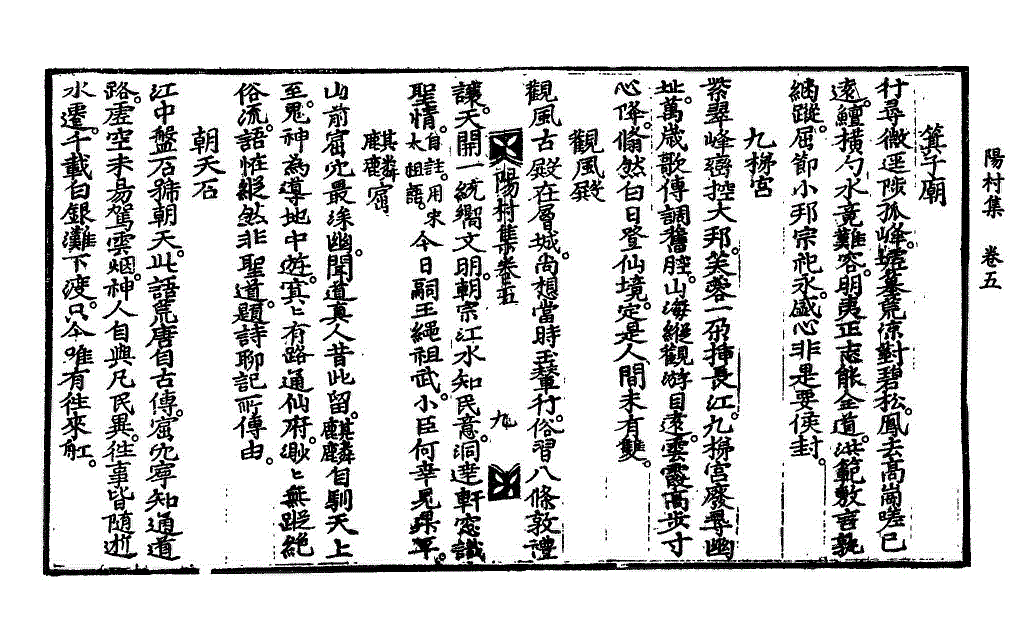 陽村集 卷五
箕子廟
行尋微逕陟孤峰。墟墓荒凉對碧松。鳳去高崗嗟已
遠。鱣橫勺水竟難容。明夷正志能全道。洪範敷言孰
繼蹤。屈節小邦宗祀永。盛心非是要侯封。
九梯宮
紫翠峰巒控大邦。芙蓉一朶揷長江。九梯宮廢尋幽
址。萬歲歌傳調舊腔。山海縱觀游目遠。雲霞高步寸
心降。翛然白日登仙境。定是人間未有雙。
觀風殿
觀風古殿在層城。尙想當時玉輦行。俗習八條敦禮
陽村集卷五 九
讓。天開一統嚮文明。朝宗江水知民意。洞達軒窓識
聖情。自註。用宋太祖語。今日嗣王繩祖武。小臣何幸見昇平。
麒麟窟
山前窟穴最深幽。聞道眞人昔此留。麒麟自馴天上
至。鬼神為導地中遊。冥〻有路通仙府。眇〻無蹤絶
俗流。語怪縱然非聖道。題詩聊記所傳由。
朝天石
江中盤石號朝天。此語荒唐自古傳。窟穴寧知通道
路。虛空未易駕雲烟。神人自與凡民異。往事皆隨逝
水遷。千載白銀灘下渡。只今唯有往來舡。